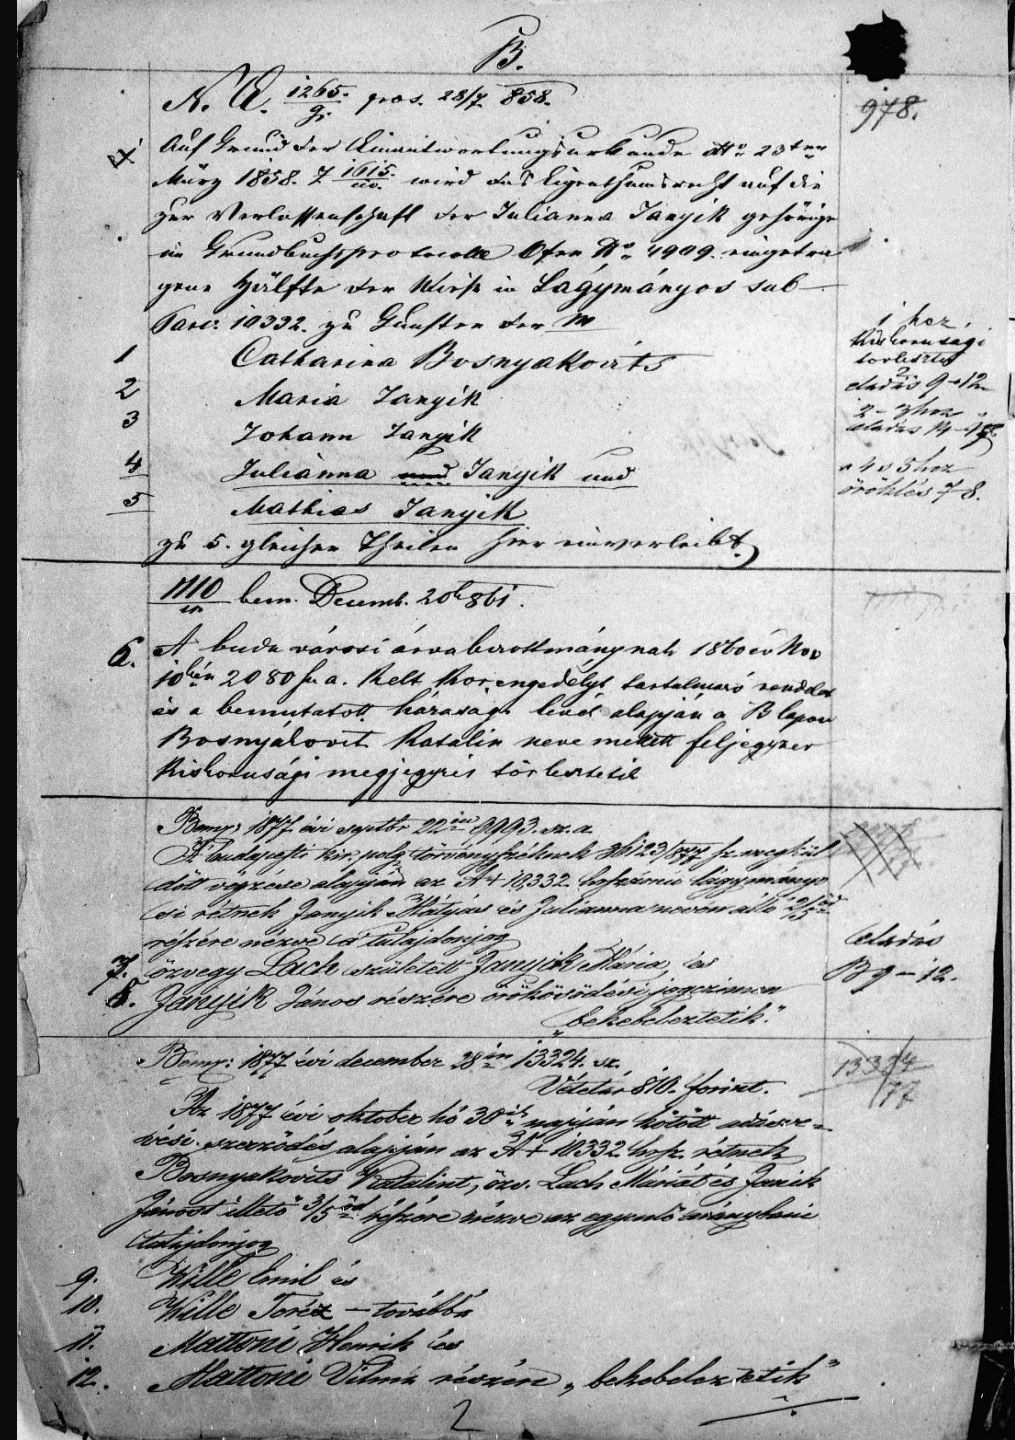 B.
N. E. 1265./g. praes. 28/7 858.
978.
Auf Grund der Einantwortungsurkunde dtto 23ten
März 1858. Z 1615. wird das Eigenthumsrecht auf die
zur Verlassenschaft der Julianna Janyik gehörige
im Grundbuchsprotocolle Ofen No 4909. eingetra
gene Hälfte der Wiese in Lágymányos sub
Parc. 10332. zu Gunsten der
1 Catharina Bosnyakovits
2 Maria Janyik
3 Johann Janyik
4 Julianna und Janyik und
5 Mathias Janyik
zu 5. gleichen Theilen hier einverleibt.
1 hez
kiskorusági
törlesztés
eladás 9-12
2-3hoz
eladás
4 s 5hoz
öröklés 7 8.
1110 bem. Decemb. 20 861.
6. A buda városi árvabizottmánynak 1860 év Nov
10kén 2080 sz a. kelt kor engedélyt tartalmazó rendelet
és a bemutatott házassági levél alapján a B lapon
Bosnyákovit Katalin neve mellett feljegyzett
kiskorusági megjegyzés törlesztetik
Bemp: 1877 évi septbr 22én 9993. sz. a.
A budapesti kir. polg törvényszéknek 36123/877 sz. megkül
dött végzése alapján az A+ 10332. hrszámú lágymányo
si rétnek Janyik Mátyás és Julianna nevén álló 2/5öd
részére nézve a tulajdonjog
7. özvegy Lach született Janyik Mária, és
8. Janyik János részére örökösödési jogczimen
„bekebeleztetik."
eladás
B 9-12.
Bemp: 1877 évi december 28án 13324. sz.
13324/77
Vételár 810. forint.
Az 1877 évi oktober hó 30ik napján kötött adásve-
vési szerződés alapján az A+ 10332 hrsz. rétnek
Bosnyakovits Katalint, özv. Lach Máriát és Janik
Jánost illető 3/5öd részére nézve az egyenlő aránybani
tulajdonjog
9. Wille Emil és
10. Wille Teréz – továbbá
11. Mattoni Henrik és
12. Mattoni Vilma részére „bekebeleztetik"
2